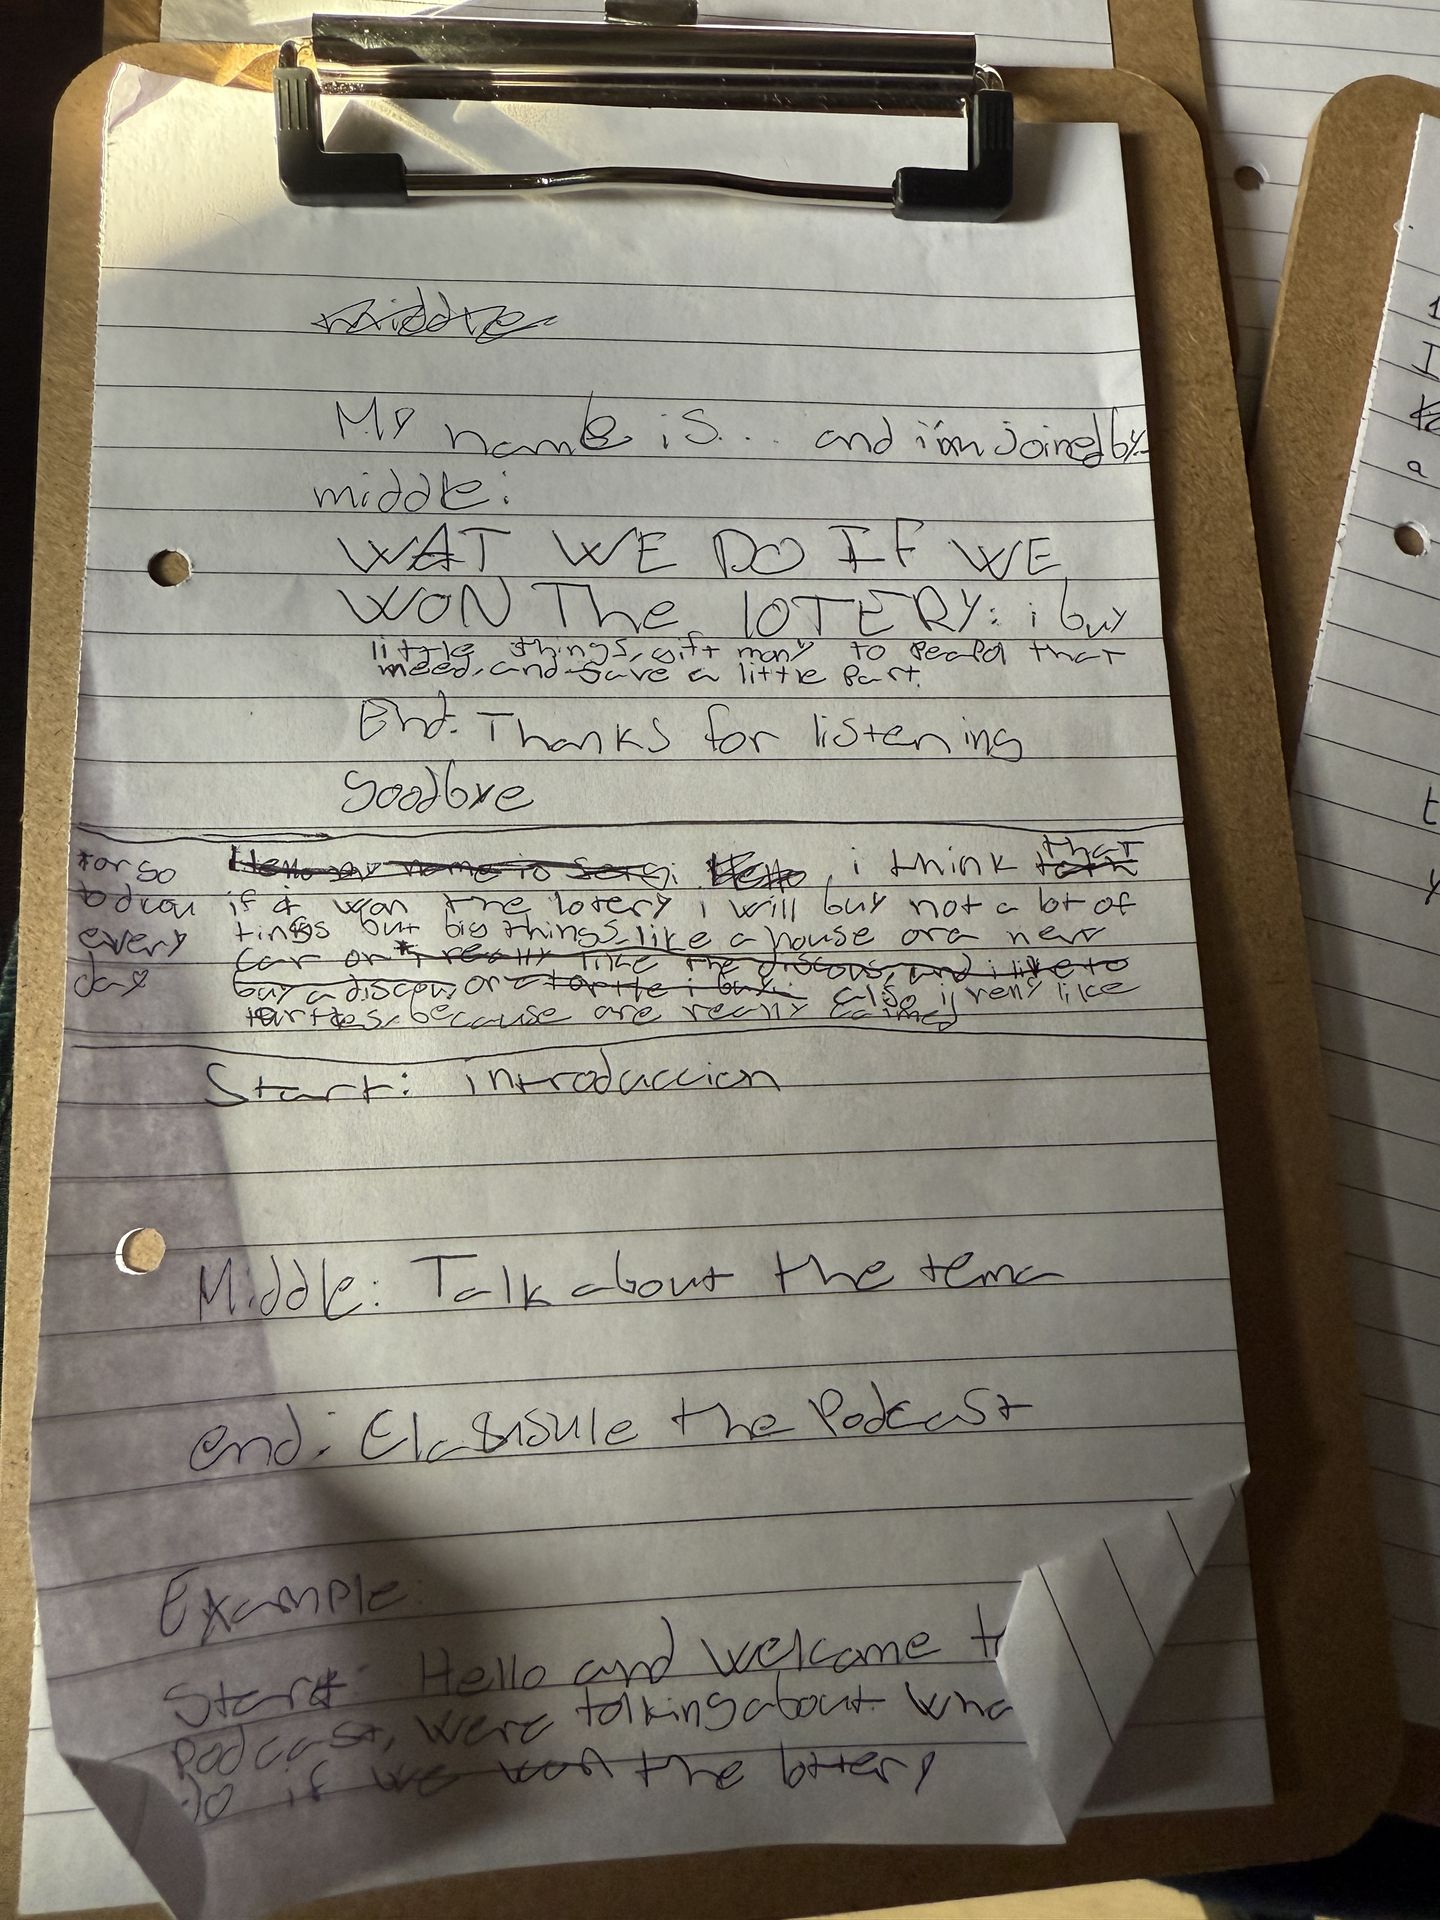 middle
My name is... and i'm joined by
middle:
WAT WE DO IF WE
WON The lOTERY: i buy
little things, gift mony to peapol that
need, and save a little part.
End: Thanks for listening
goodbye
Hello my name is Sergi. Hello, i think that
if i won the lotery i will buy not a lot of
tings but big things, like a house or a new
car or i really like the discous, and i like to
buy a discou, or a tortle i buy. also i reny like
turtles, because are really calmed
or so
to dicou
every
day
Start: introduccion
Middle: Talk about the tema
end: Clausule the Podcast
Example:
Start: Hello and welcome t
Podcast, were talking about wha
do if we won the lottery
1
I
a
t
y